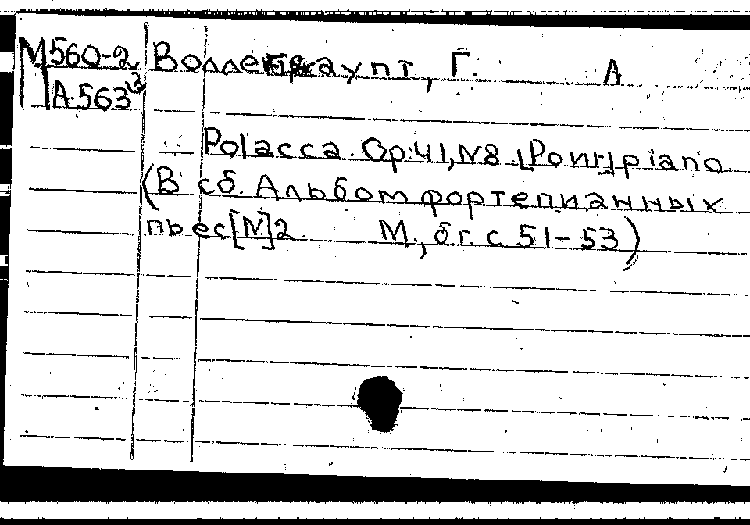 М560-2 Волленгаупт, Г. А
А563
Polacca. Op. 41, N8. [Pour] piano
(В сб. Альбом фортепианных
пьес [N] 2. М., б.г. с 51-53)